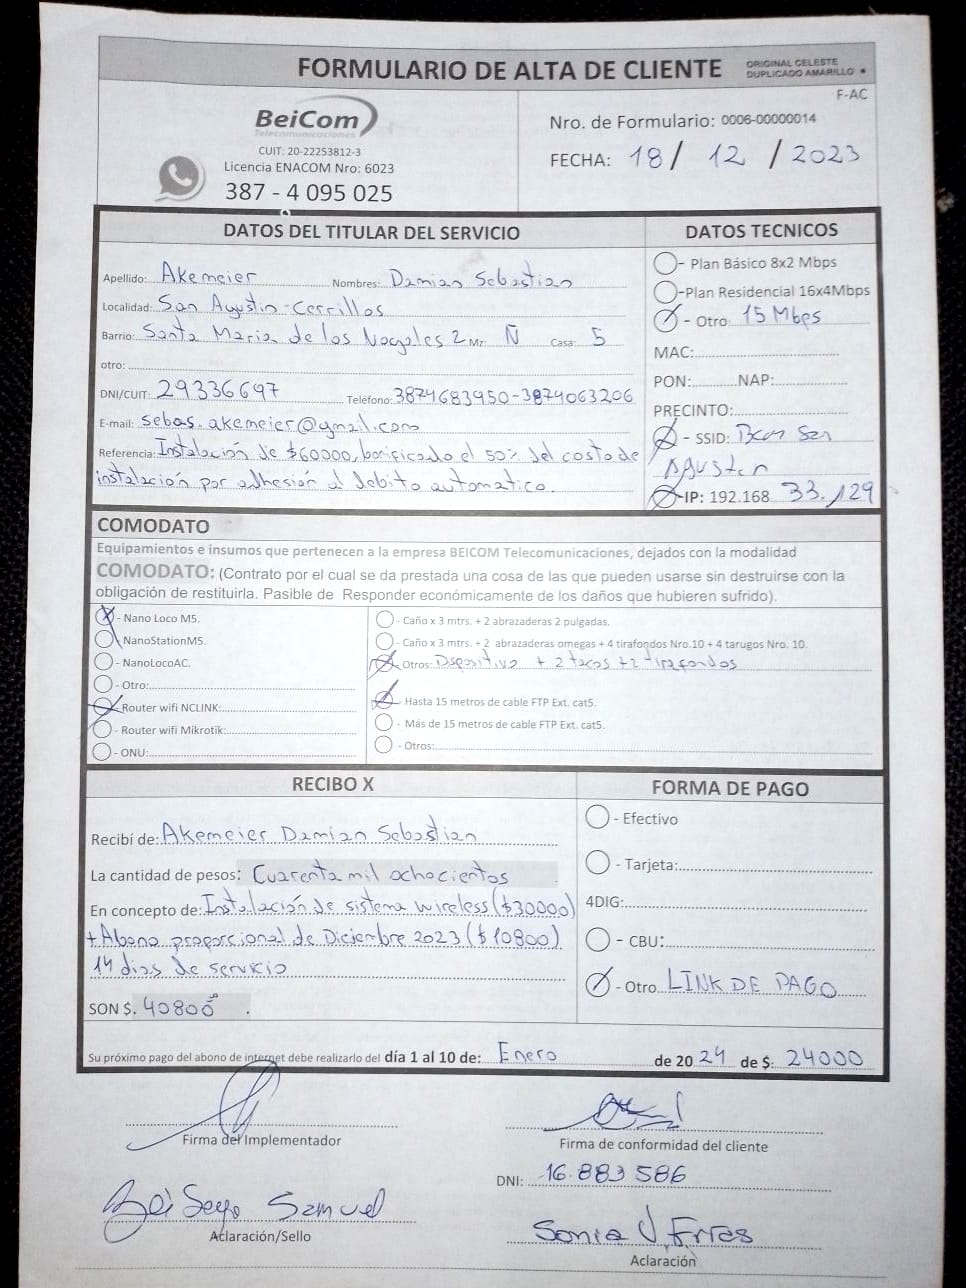 FORMULARIO DE ALTA DE CLIENTE
ORIGINAL CELESTE
DUPLICADO AMARILLO
F-AC
BeiCom
Telecomunicaciones
CUIT: 20-22253812-3
Licencia ENACOM Nro: 6023
387 - 4 095 025
Nro. de Formulario: 0006-00000014
FECHA: 18 / 12 / 2023
DATOS DEL TITULAR DEL SERVICIO
Apellido: Akemeier Nombres: Damian Sebastian
Localidad: San Agustin - Cerrillos
Barrio: Santa Maria de los Nogales 2 Mz: Ñ Casa: 5
otro:
DNI/CUIT: 29336697 Teléfono: 3874683950-3874063206
E-mail: sebas.akemeier@gmail.com
Referencia: Instalación de $60000, bonificado el 50% del costo de
instalación por adhesión al debito automatico.
DATOS TECNICOS
- Plan Básico 8x2 Mbps
-Plan Residencial 16x4Mbps
- Otro: 15 Mbps
MAC:
PON: NAP:
PRECINTO:
- SSID: Bcom San
Agustin
-IP: 192.168 33.129
COMODATO
Equipamientos e insumos que pertenecen a la empresa BEICOM Telecomunicaciones, dejados con la modalidad
COMODATO: (Contrato por el cual se da prestada una cosa de las que pueden usarse sin destruirse con la
obligación de restituirla. Pasible de Responder económicamente de los daños que hubieren sufrido).
- Nano Loco M5.
NanoStationM5.
- NanoLocoAC.
- Otro:
Router wifi NCLINK:
- Router wifi Mikrotik:
- ONU:
- Caño x 3 mtrs. + 2 abrazaderas 2 pulgadas.
- Caño x 3 mtrs. + 2 abrazaderas omegas + 4 tirafondos Nro.10 + 4 tarugos Nro. 10.
Otros: Dispositivo + 2 tacos + 2 tirafondos
Hasta 15 metros de cable FTP Ext. cat5.
- Más de 15 metros de cable FTP Ext. cat5.
- Otros:
RECIBO X
Recibí de: Akemeier Damian Sebastian
La cantidad de pesos: Cuarenta mil ochocientos
En concepto de: Instalación de sistema wireless ($30000)
+ Abono proporcional de Diciembre 2023 ($10800)
14 dias de servicio
SON $. 40800
FORMA DE PAGO
- Efectivo
- Tarjeta:
4DIG:
- CBU:
- Otro LINK DE PAGO
Su próximo pago del abono de internet debe realizarlo del día 1 al 10 de: Enero de 2024 de $: 24000
Firma del Implementador
Firma de conformidad del cliente
DNI: 16.883 586
Samuel
Aclaración/Sello
Sonia Frias
Aclaración